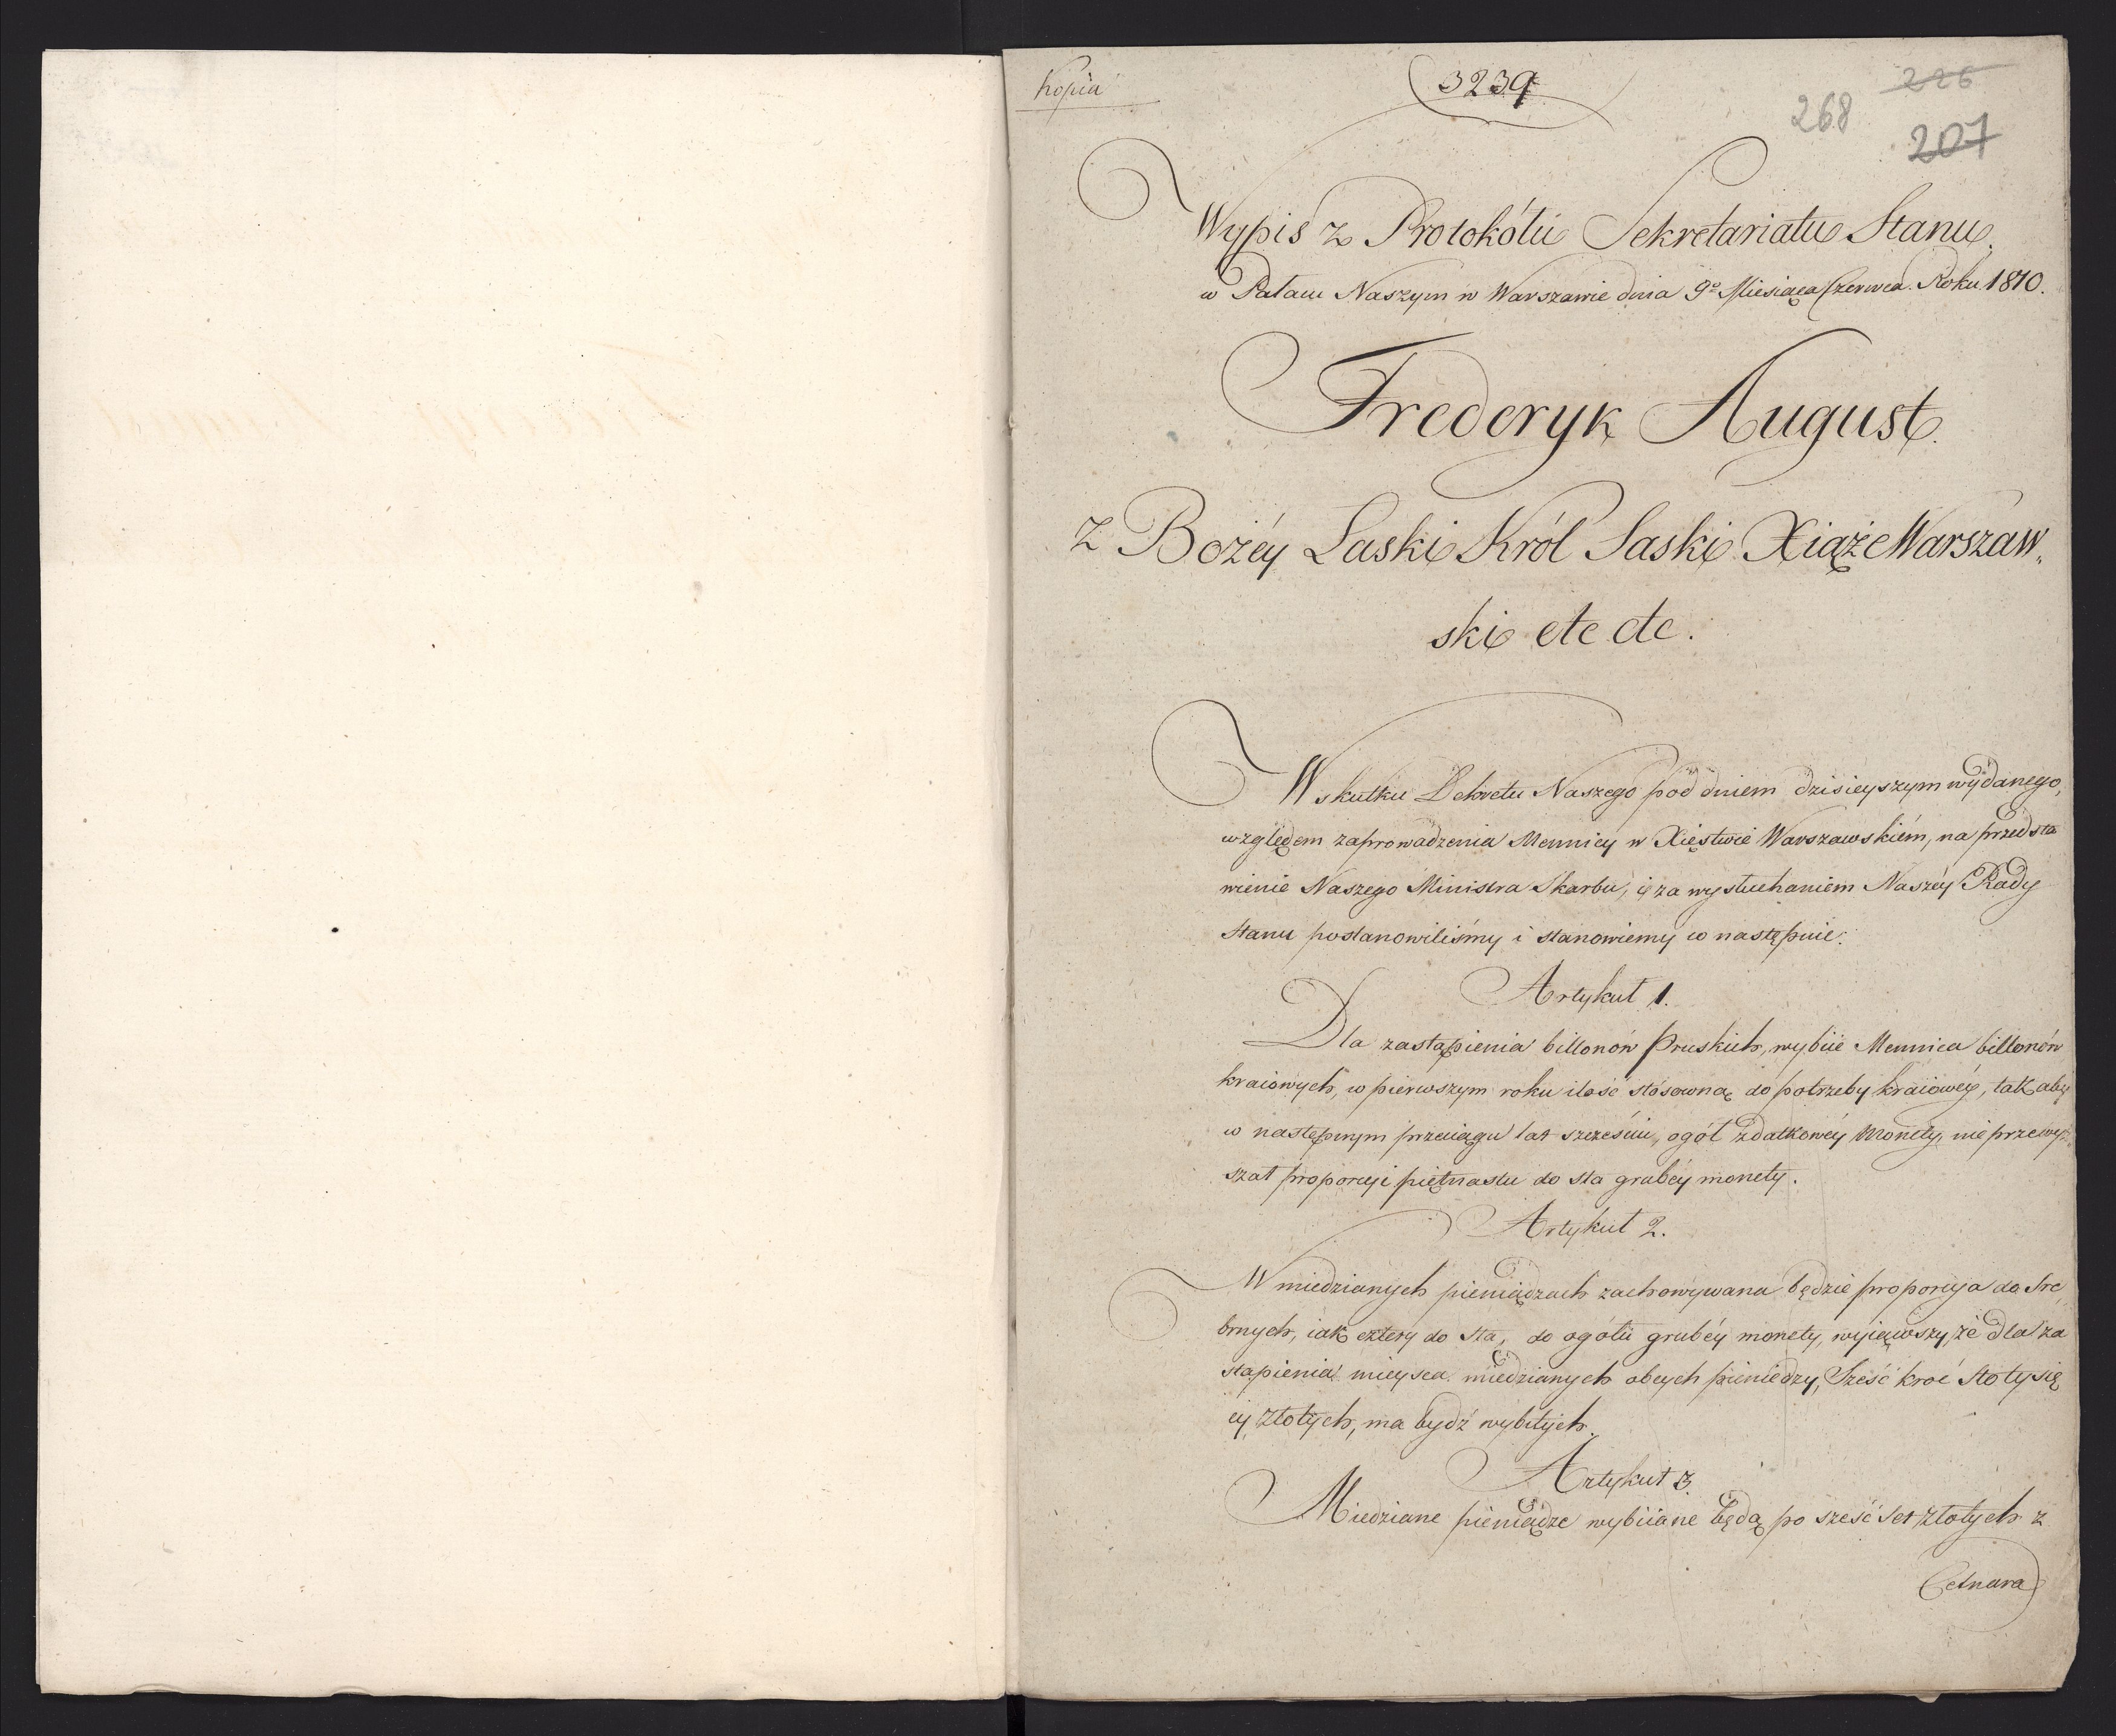 Kopia
3239
226
268
207
Wypis z Protokółu Sekretariatu Stanu.
w Pałacu Naszym w Warszawie dnia 9º Miesiąca Czerwca. Roku 1810.
Frederyk August.
z Bożéy Łaski Król Saski Xiąże Warszaw„
ski etc etc.
W skutku Dekretu Naszego pod dniem dzisieyszym wydanego,
względem zaprowadzenia Mennicy w Xięstwie Warszawskiém, na przedsta
wienie Naszego Ministra Skarbu, i za wysłuchaniem Naszéy Rady
Stanu postanowiliśmy i stanowiemy co następuie:
Artykuł 1.
Dla zastąpienia billonów Pruskich, wybiie Mennica billonów
kraiowych, w pierwszym roku ilość stósowną do potrzeby kraiowéy, tak aby
w następnym przeciągu lat sześciu, ogół zdatkowéy Monety, nie przewyż„
szał proporcyi piętnastu do sta grubéy monety.
Artykuł 2.
W miedzianych pieniądzach zachowywana będzie proporcya do Sre„
brnych, iak cztery do sta, do ogółu grubéy monety, wyiąwszy, że dla za
stąpienia mieysca miedzianych obcych pieniędzy, Sześć kroć Sto tysię
cy Złotych, ma bydź wybitych.
Artykuł 3.
Miedziane pieniądze wybiiane będą po sześć set Złotych z
Cetnara